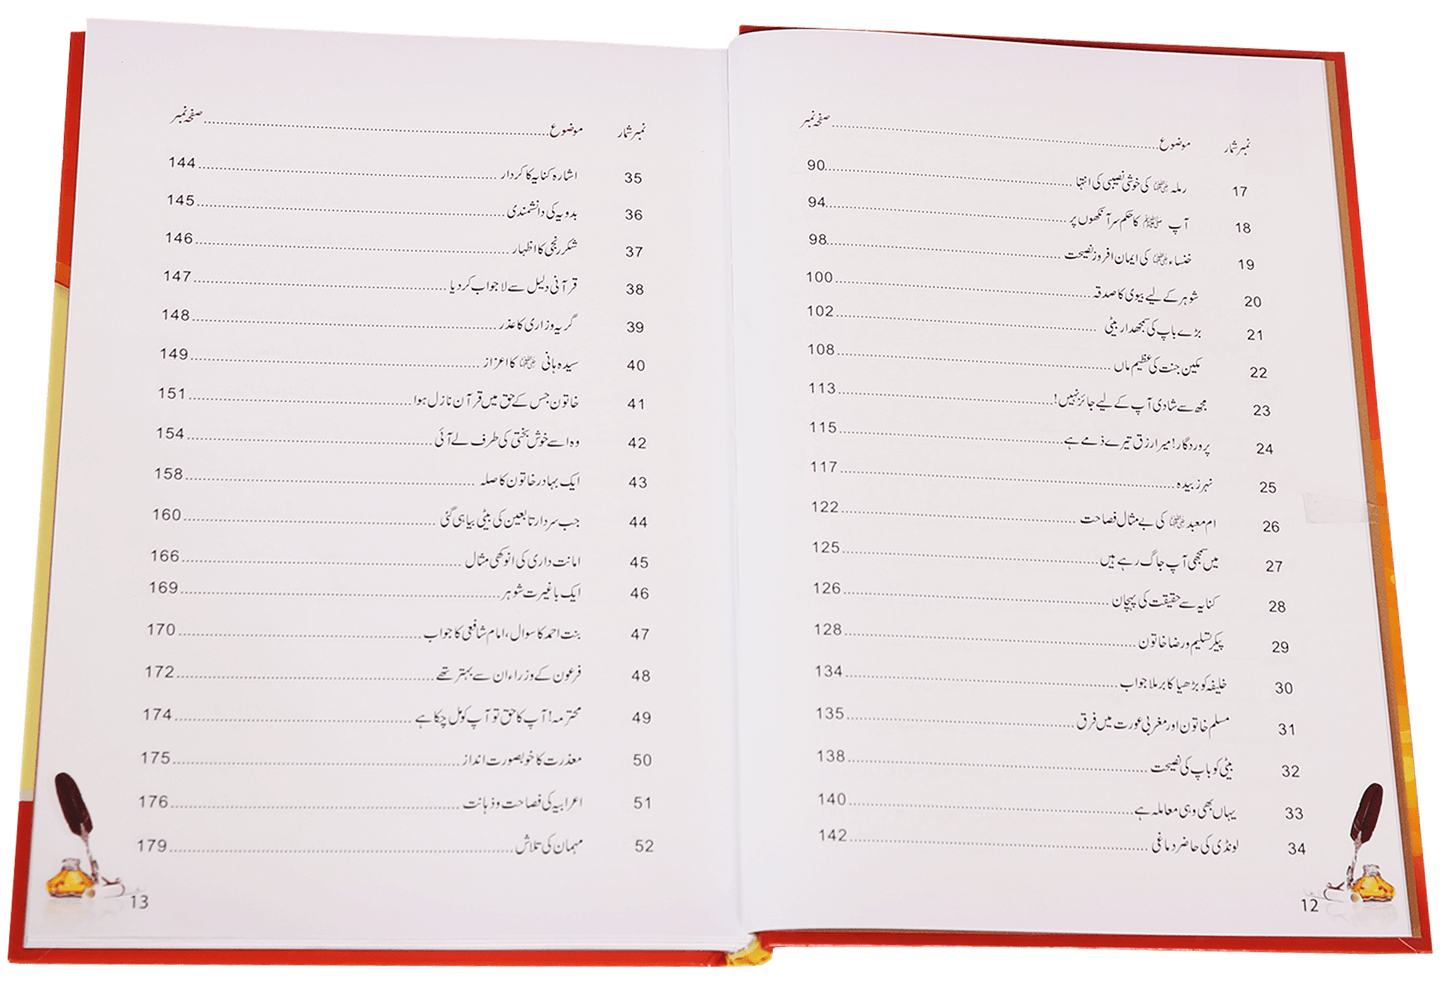 نمبر شمار موضوع صفحہ نمبر
17 رملہ رضی اللہ عنہا کی خوشی نصیبی کی انتہا 90
18 آپ ﷺ کا حکم سر آنکھوں پر 94
19 خنساء رضی اللہ عنہا کی ایمان افروز نصیحت 98
20 شوہر کے لیے بیوی کا صدقہ 100
21 بڑے باپ کی سمجھدار بیٹی 102
22 مکین جنت کی عظیم ماں 108
23 مجھ سے شادی آپ کے لیے جائز نہیں! 113
24 پروردگار! میرا رزق تیرے ذمے ہے 115
25 نہر زبیدہ 117
26 ام معبد رضی اللہ عنہا کی بے مثال فصاحت 122
27 میں سمجھی آپ جاگ رہے ہیں 125
28 کنایہ سے حقیقت کی پہچان 126
29 پیکر تسلیم و رضا خاتون 128
30 خلیفہ کو بڑھیا کا برملا جواب 134
31 مسلم خاتون اور مغربی عورت میں فرق 135
32 بیٹی کو باپ کی نصیحت 138
33 یہاں بھی وہی معاملہ ہے 140
34 لونڈی کی حاضر دماغی 142
12
نمبر شمار موضوع صفحہ نمبر
35 اشارہ کنایہ کا کردار 144
36 بدویہ کی دانشمندی 145
37 شکر رنجی کا اظہار 146
38 قرآنی دلیل سے لاجواب کر دیا 147
39 گریہ وزاری کا عذر 148
40 سیدہ ہانی رضی اللہ عنہا کا اعزاز 149
41 خاتون جس کے حق میں قرآن نازل ہوا 151
42 وہ اسے خوش بختی کی طرف لے آئی 154
43 ایک بہادر خاتون کا صلہ 158
44 جب سردار تابعین کی بیٹی بیاہی گئی 160
45 امانت داری کی انوکھی مثال 166
46 ایک باغیرت شوہر 169
47 بنت احمد کا سوال، امام شافعی کا جواب 170
48 فرعون کے وزراء ان سے بہتر تھے 172
49 محترمہ! آپ کا حق تو آپ کو مل چکا ہے 174
50 معذرت کا خوبصورت انداز 175
51 اعرابیہ کی فصاحت و ذہانت 176
52 مہمان کی تلاش 179
13